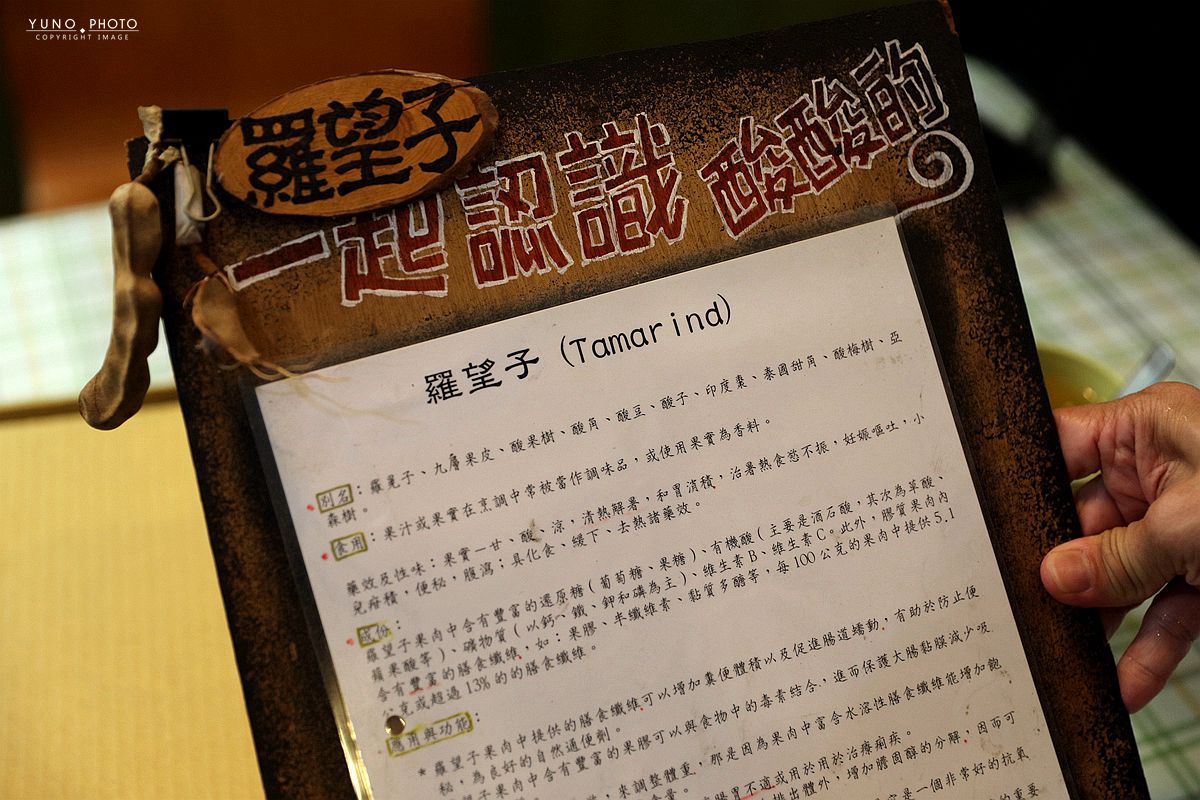 YUNO PHOTO
COPYRIGHT IMAGE
羅望子
一起認識 酸酸的
羅望子 (Tamarind)
別名：羅晃子、九層果皮、酸果樹、酸角、酸豆、酸子、印度棗、泰國甜角、酸梅樹、亞
森樹。
食用：果汁或果實在烹調中常被當作調味品，或使用果實為香料。
藥效及性味：果實—甘、酸、涼，清熱解暑，和胃消積，治暑熱食慾不振，妊娠嘔吐，小
兒疳積，便秘，腹瀉；具化食、緩下、去熱諸藥效。
成份：
羅望子果肉中含有豐富的還原糖（葡萄糖、果糖）、有機酸（主要是酒石酸，其次為草酸、
蘋果酸等）、礦物質（以鈣、鐵、鉀和磷為主）、維生素B、維生素C。此外，膠質果肉內
含有豐富的膳食纖維，如：果膠、半纖維素、黏質多醣等，每100公克的果肉中提供5.1
公克或超過13%的的膳食纖維。
應用與功能：
* 羅望子果肉中提供的膳食纖維可以增加糞便體積以及促進腸道蠕動，有助於防止便
秘，為良好的自然通便劑。
望子果肉中含有豐富的果膠可以與食物中的毒素結合，進而保護大腸黏膜減少吸
來調整體重，那是因為果肉中富含水溶性膳食纖維能增加飽
胃不適或用於用於治療痢疾。
排出體外，增加膽固醇的分解，因而可
是一個非常好的抗氧
的重要